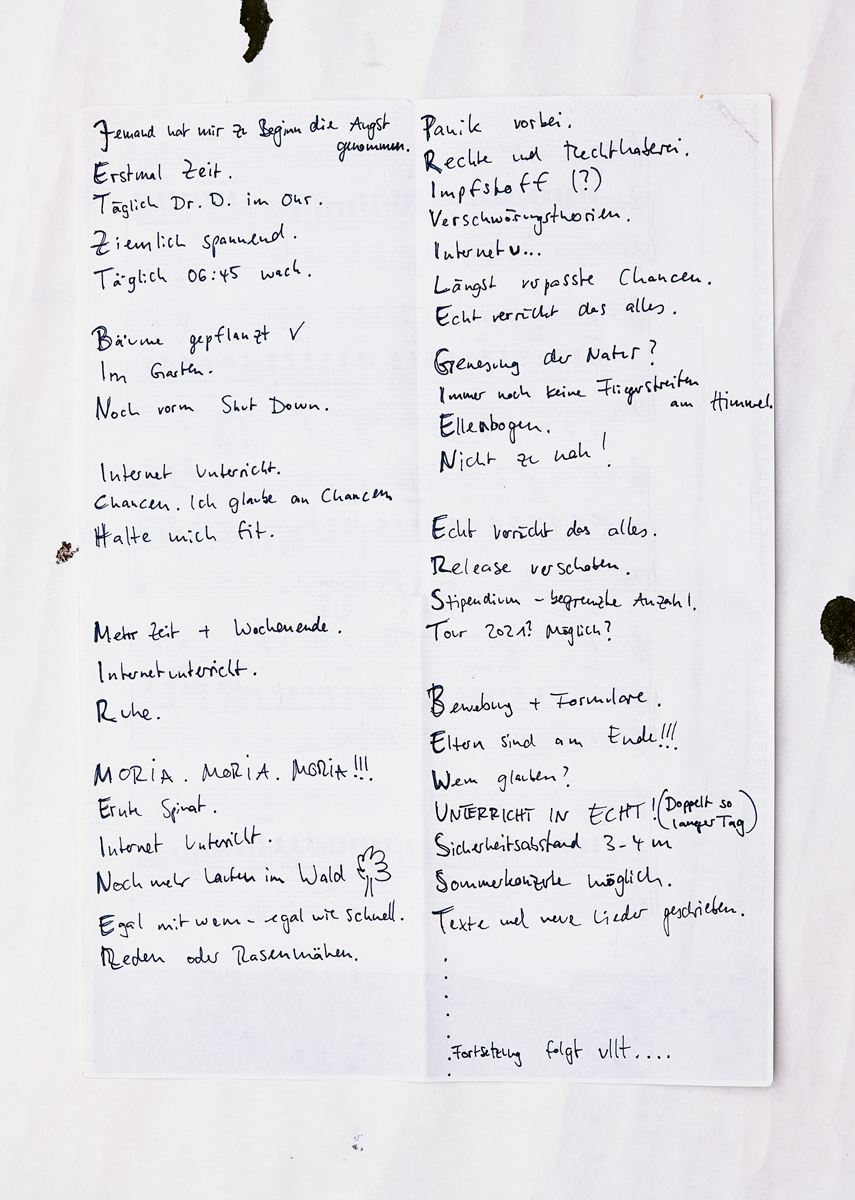 Jemand hat mir zu Beginn die Angst
genommen.
Erstmal Zeit.
Täglich Dr. D. im Ohr.
Ziemlich spannend.
Täglich 06:45 wach.
Bäume gepflanzt ✓
Im Garten.
Noch vorm Shut Down.
Internet Unterricht.
Chancen. Ich glaube an Chancen
Halte mich fit.
Mehr Zeit + Wochenende.
Internetunterricht.
Ruhe.
MORIA. MORIA. MORIA!!!
Ernte Spinat.
Internet Unterricht.
Noch mehr Laufen im Wald
Egal mit wem - egal wie schnell.
Reden oder Rasenmähen.
Panik vorbei.
Rechte und Rechthaberei.
Impfstoff (?)
Verschwörungstheorien.
Internet U...
Längst verpasste Chancen.
Echt verrückt das alles.
Genesung der Natur?
Immer noch keine Fliegerstreifen
am Himmel.
Ellenbogen.
Nicht zu nah!
Echt verrückt das alles.
Release verschoben.
Stipendium - begrenzte Anzahl.
Tour 2021? Möglich?
Bewebung + Formulare.
Eltern sind am Ende!!!
Wem glauben?
UNTERRICHT IN ECHT! (Doppelt so
langer Tag)
Sicherheitsabstand 3-4 m
Sommerkonzerte möglich.
Texte und neue Lieder geschrieben.
Fortsetzung folgt vllt....